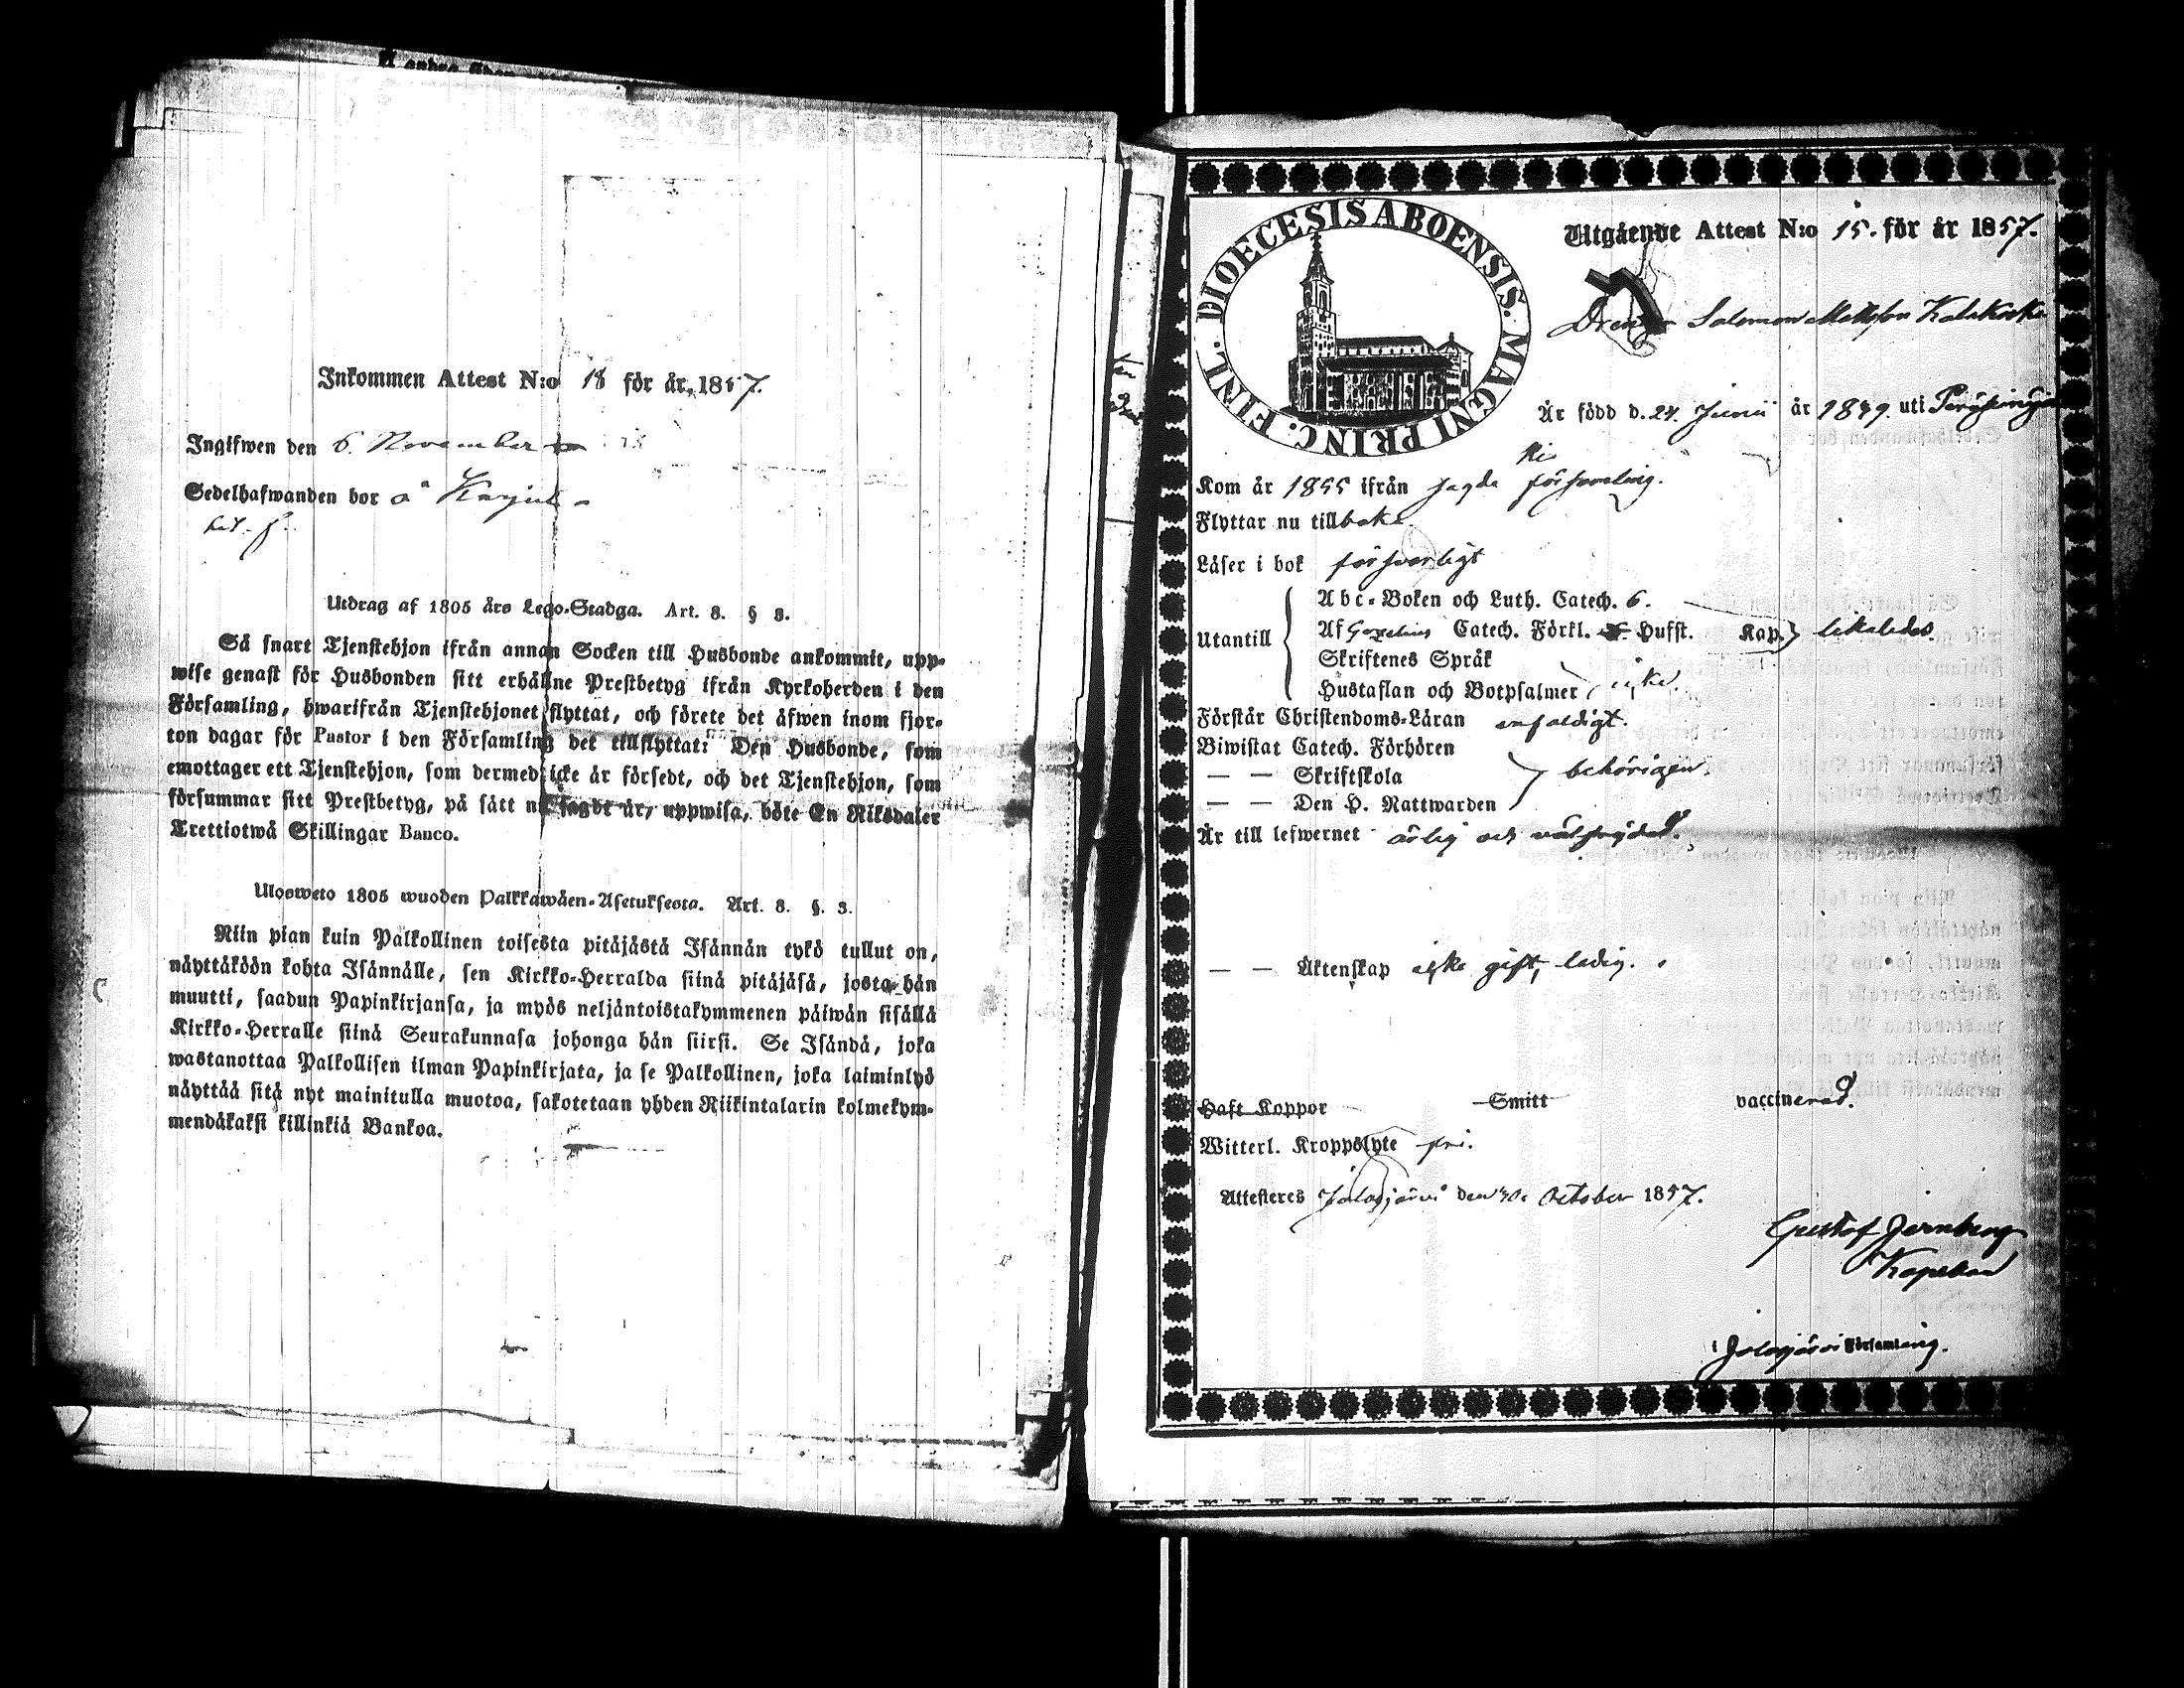 Inkommen Attest N:o 18 för år 1857.
Ingifwen den 6. November
Sedelhafwanden bor å
Utdrag af 1805 års Lego-Stadga. Art. 8. § 3.
Så snart Tjenstehjon ifrån annan Socken till Husbonde ankommit, upp-
wise genast för Husbonden sitt erhållne Prestbetyg ifrån Kyrkoherden i den
Församling, hwarifrån Tjenstehjonet flyttat, och förete det äfwen inom fjor-
ton dagar för Pastor i den Församling det tillflyttat: Den Husbonde, som
emottager ett Tjenstehjon, som dermed icke är försedt, och det Tjenstehjon, som
försummar sitt Prestbetyg, på sätt nu sagdt är, uppwisa, böte En Riksdaler
Trettiotwå Skillingar Banco.
Ulosweto 1805 wuoden Palkkawäen-Asetuksesta. Art. 8. §. 3.
Niin pian kuin Palkollinen toisesta pitäjästä Isännän tykö tullut on,
näyttäköön kohta Isännälle, sen Kirkko-Herralda siinä pitäjäsä, josta hän
muutti, saadun Papinkirjansa, ja myös neljäntoistakymmenen päiwän sisällä
Kirkko-Herralle siinä Seurakunnasa johonga hän siirsi. Se Isändä, joka
wastanottaa Palkollisen ilman Papinkirjata, ja se Palkollinen, joka laiminlyö
näyttää sitä nyt mainitulla muotoa, sakotetaan yhden Riikintalarin kolmekym-
mendäkaksi killinkiä Bankoa.
DIOECESIS ABOENSIS. MAGNI PRINC. FINL.
Utgående Attest N:o 15. för år 1857.
Drengen Salomon Mattsson
Är född d. 24. Junii år 1839. uti
Kom år 1855 ifrån församling.
Flyttar nu tillbaka.
Läser i bok försvarligt
Utantill
Abc-Boken och Luth. Catech. 6.
Af Gezelius Catech. Förkl. Hufst. Kap. likaledes.
Skriftenes Språk
Hustaflan och Botpsalmer icke.
Förstår Christendoms-Läran enfaldigt.
Biwistat Catech. Förhören
— — Skriftskola behörigen.
— — Den H. Nattwarden
Är till lefwernet ärlig och välfrejdad.
— — Äktenskap icke gift, ledig.
Haft Koppor Smitt vaccinerad.
Witterl. Kroppslyte fri.
Attesteres Jalasjärvi den 30. October 1857.
Gustaf Jernberg
Kapellan
i Jalasjärvi Församling.